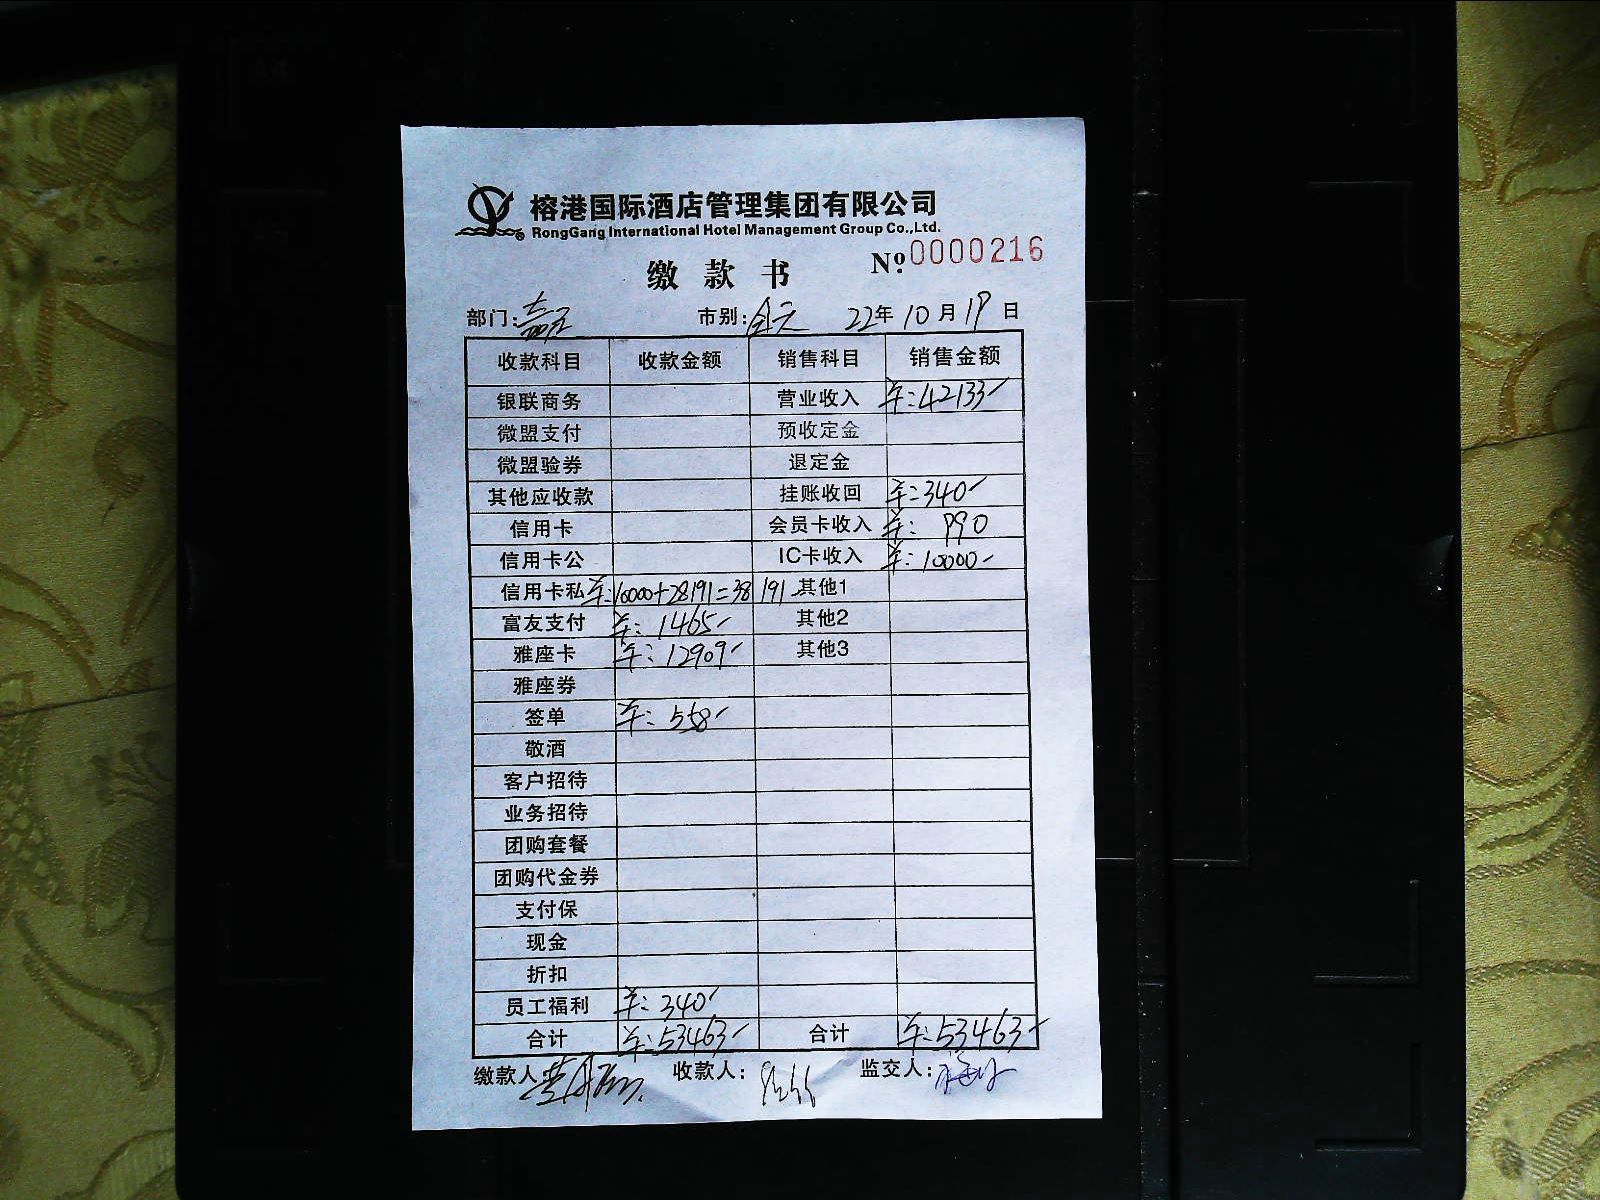 榕港国际酒店管理集团有限公司
RongGang International Hotel Management Group Co.,Ltd.
缴款书 Nº.0000216
部门: 市别:全天 22年10月19日
收款科目 收款金额 销售科目 销售金额
银联商务 营业收入 ¥:42133
微盟支付 预收定金
微盟验券 退定金
其他应收款 挂账收回 ¥:340
信用卡 会员卡收入 ¥:990
信用卡公 IC卡收入 ¥:10000
信用卡私 ¥:10000+28191=38191 其他1
富友支付 ¥:1465 其他2
雅座卡 ¥:12909 其他3
雅座券
签单 ¥:558
敬酒
客户招待
业务招待
团购套餐
团购代金券
支付保
现金
折扣
员工福利 ¥:340
合计 ¥:53463 合计 ¥:53463
缴款人: 收款人: 监交人: